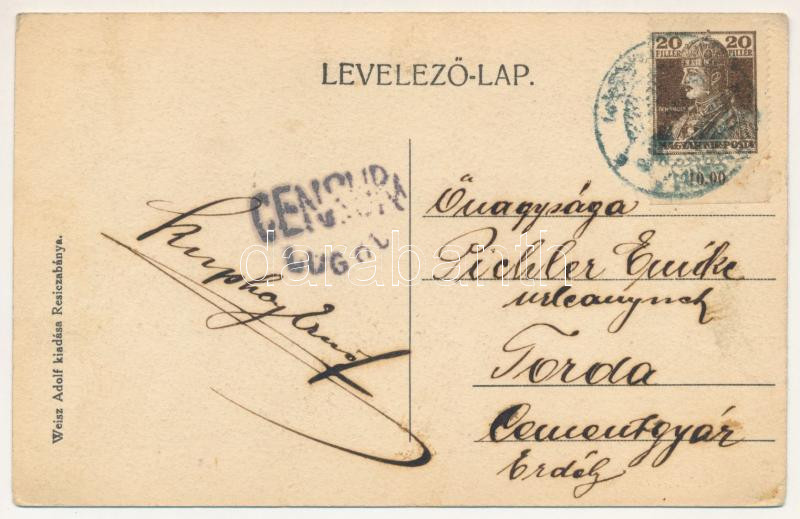 LEVELEZŐ-LAP.
20 20
FILLÉR FILLÉR
MAGYAR KIR. POSTA
10.00
CENSURA
LUGOJ
Őnagysága
Pichler Emike
urleánynak
Torda
Cementgyár
Erdély
Ernő
Weisz Adolf kiadása Resiczabánya.
darabanth